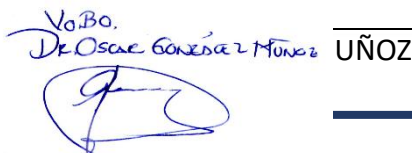 VoBo.
Dr. Oscar González Muñoz UÑOZ